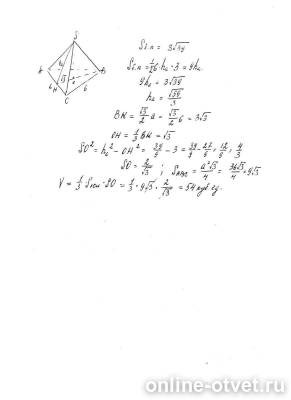 S
h₆
A
B
√3
6
H
6
C
Sбп = 3√39
Sбп = ½·6·h₆·3 = 9h₆
9h₆ = 3√39
h₆ = √39/3
BH = √3/2 a = √3/2 6 = 3√3
OH = 1/3 BH = √3
SO² = h₆² - OH² = 39/9 - 3 = 39/9 - 27/9 = 12/9 = 4/3
SO = 2/√3 ; Sосн = a²√3/4 = 36√3/4 = 9√3
V = 1/3 Sосн·SO = 1/3 · 9√3 · 2/√3 = 54 куб ед.
online-otvet.ru